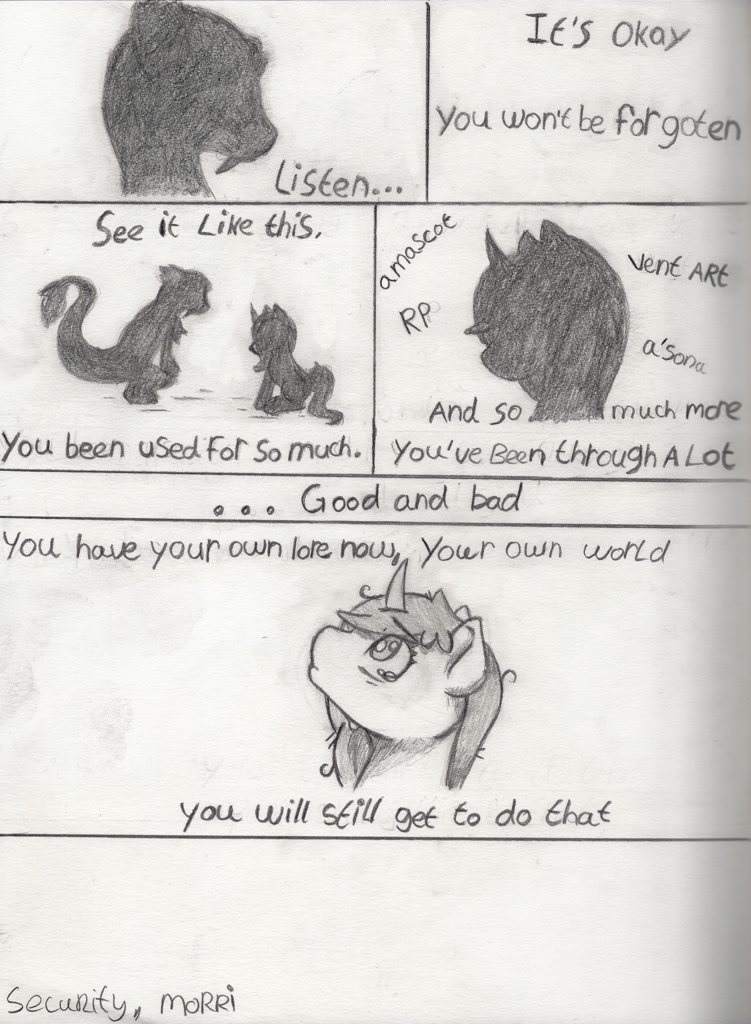 Listen...
It's okay
You won't be forgoten
See it Like this.
You been used for so much.
amascot
RP
Vent ART
a'sona
And so much more
You've Been through A Lot
... Good and bad
You have your own lore now, Your own world
you will still get to do that
Security, MORRi